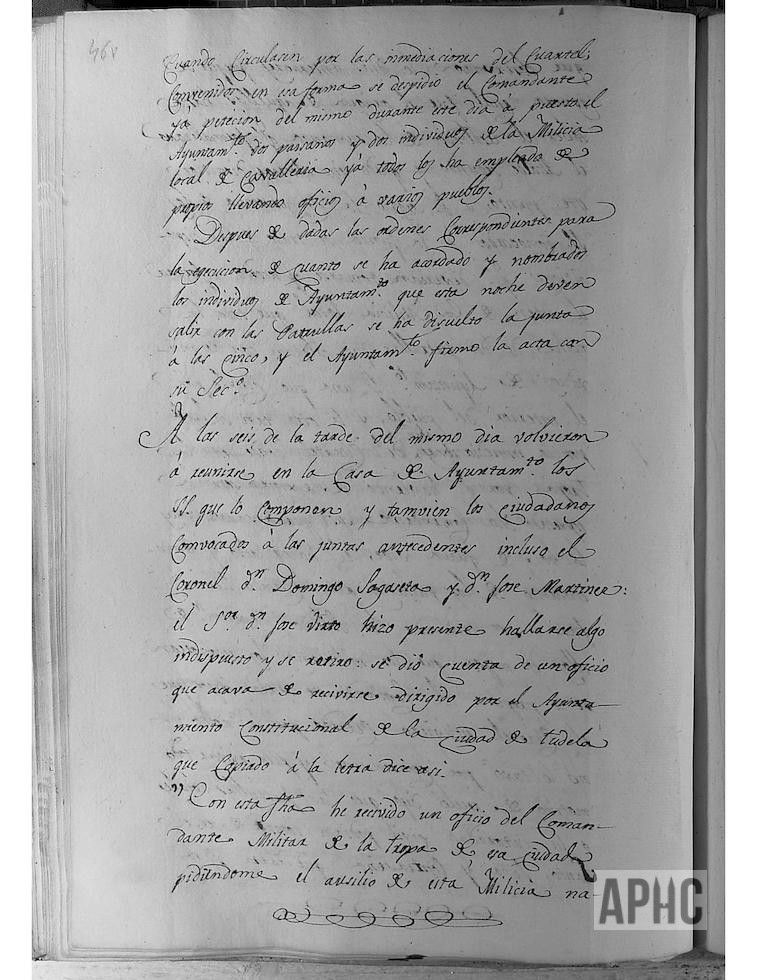 46v
Cuando Circulasen por las inmediaciones del Cuartel;
Convenidos en esa forma se despidio el Comandante
ya peticion del mismo durante este dia á puesto el
Ayuntam.to dos paisanos y dos individuos de la Milicia
local de Cavalleria ya todos los ha empleado de
propios llevando oficios á varios pueblos.
Despues de dadas las ordenes Correspondientes para
la egecucion de cuanto se ha acordado y nombrados
los individuos de Ayuntam.to que esta noche deven
salir con las Patrullas se ha disuelto la junta
á las Cinco, y el Ayuntam.to firmo la acta con
su Sec.o
A las seis de la tarde del mismo dia volvieron
á reunirse en la Casa de Ayuntam.to los
SS. que lo Componen y tamvien los Ciudadanos
Comvocados á las juntas antecedentes incluso el
Coronel d.n Domingo Sagaseta y d.n Jose Martinez:
el S.or d.n Jose Virto hizo presente hallarse algo
indispuesto y se retiro: se dió cuenta de un oficio
que acava de recivirse dirigido por el Ayunta-
miento Constitucional de la Ciudad de Tudela
que Copiado á la letra dice asi.
" Con esta fha he recivido un oficio del Coman-
dante Militar de la tropa de esa Ciudad
pidiendome el ausilio de esta Milicia na-
APHC